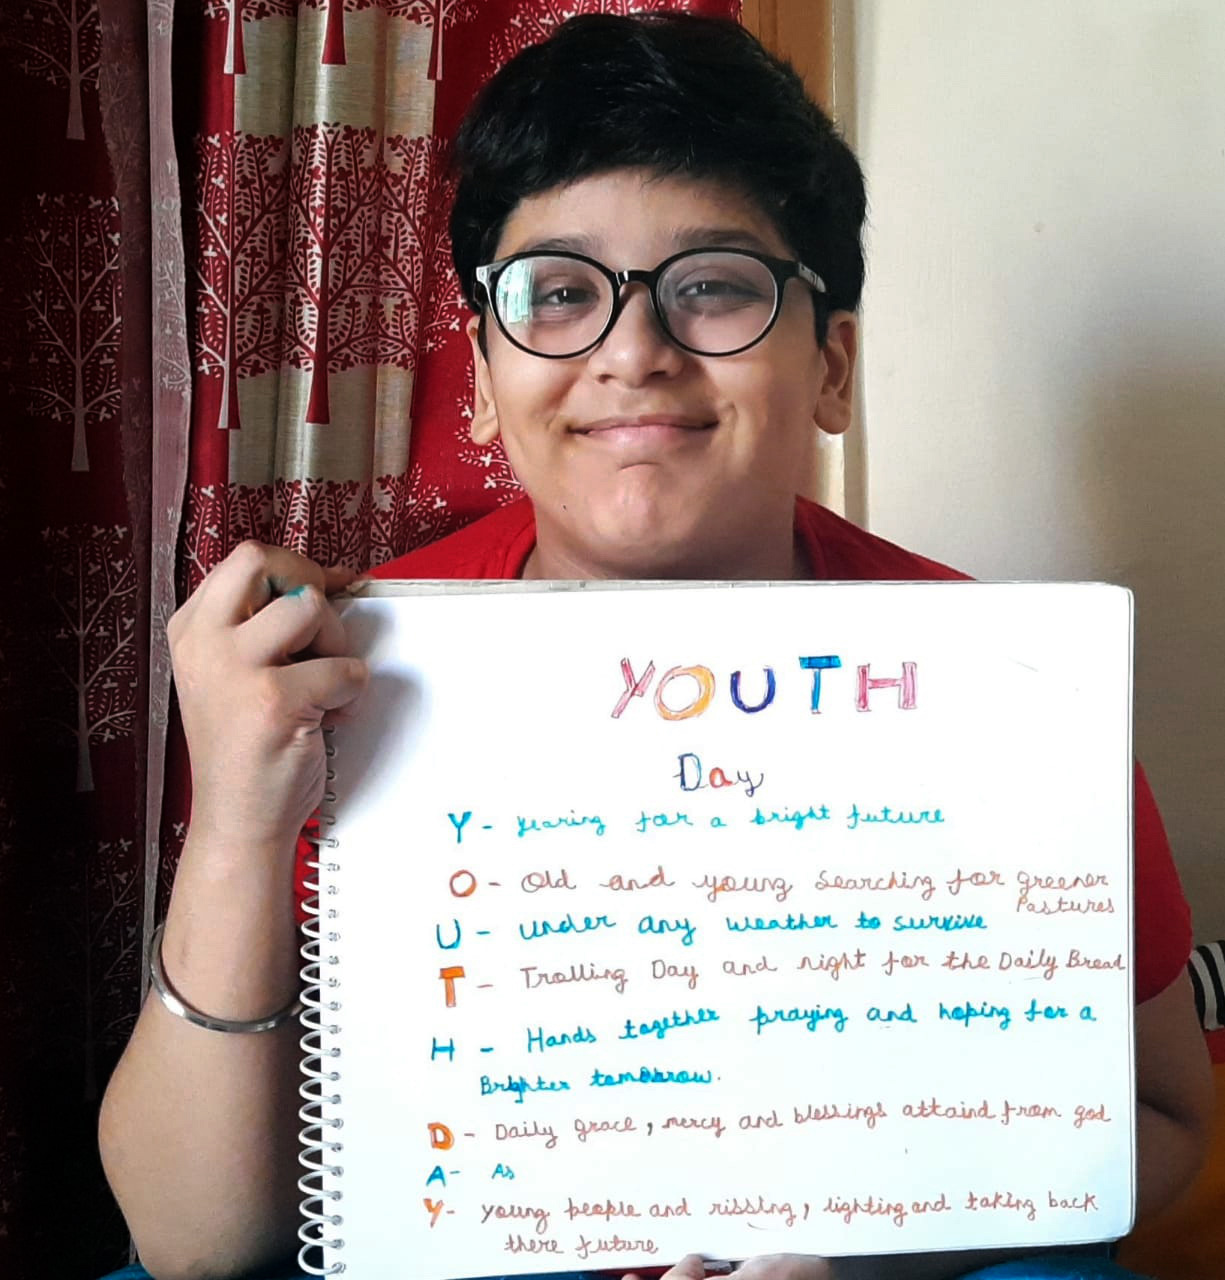 YOUTH
Day
Y - yearing for a bright future
O - Old and young searching for greener
Pastures
U - under any weather to survive
T - Trolling Day and night for the Daily Bread
H - Hands together praying and hoping for a
Brighter tomorrow.
D - Daily grace, mercy and blessings attaind from god
A - As
Y - young people and rissing, lighting and taking back
there future